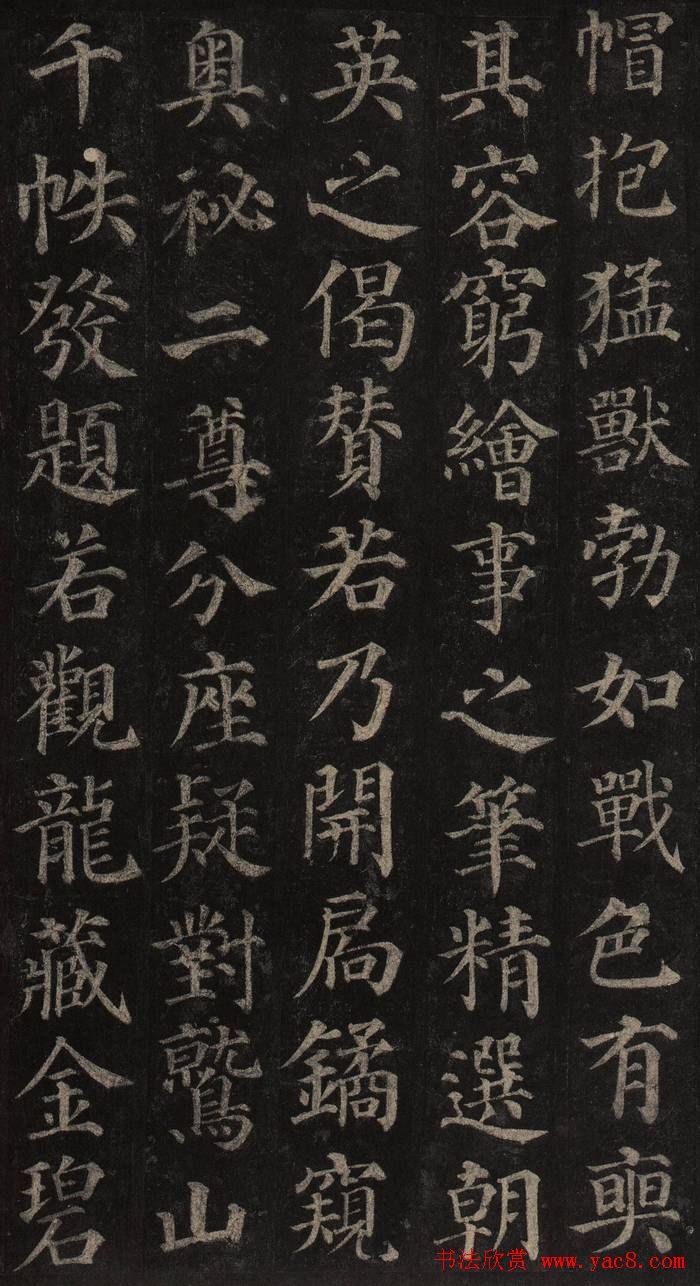 帽抱猛獸勃如戰色有奭
其容窮繪事之筆精選朝
英之偈賛若乃開扃鐍窺
奧祕二尊分座疑對鷲山
千帙發題若觀龍藏金碧
书法欣赏 www.yac8.com